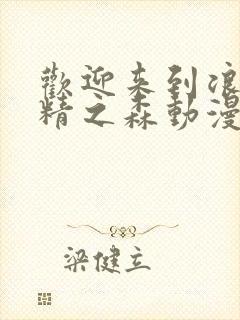 歡迎来到浪
精之森動漫
梁健立